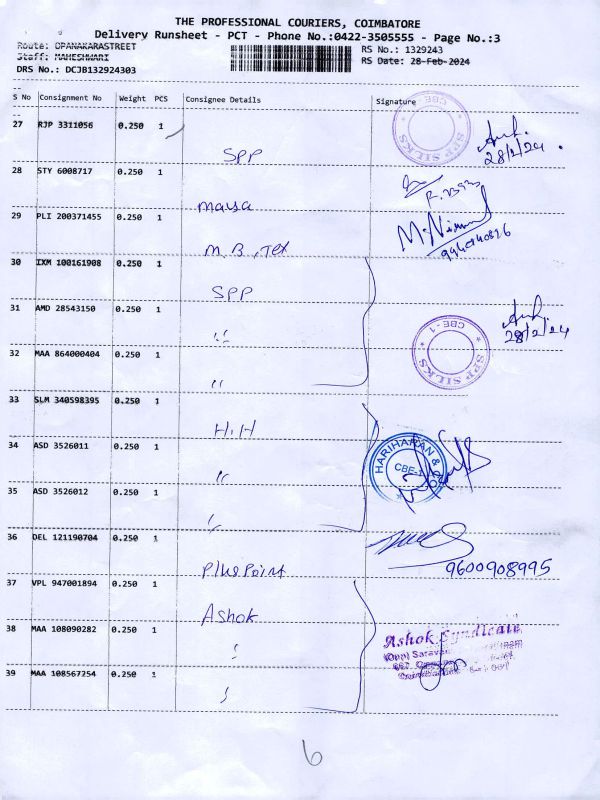 THE PROFESSIONAL COURIERS, COIMBATORE
Delivery Runsheet - PCT - Phone No.:0422-3505555 - Page No.:3
Route: OPANAKARASTREET RS No.: 1329243
Staff: MAHESHWARI RS Date: 28-Feb-2024
DRS No.: DCJB132924303
S No Consignment No Weight PCS Consignee Details Signature
27 RJP 3311056 0.250 1
SPP
SPP SILKS CBE-1
28/2/24
28 STY 6008717 0.250 1
Maya
29 PLI 200371455 0.250 1
M.B, Tex
9940940826
30 IXM 100161908 0.250 1
SPP
31 AMD 28543150 0.250 1
"
28/2/24
32 MAA 864000404 0.250 1
"
SPP SILKS CBE-1
33 SLM 340598395 0.250 1
H.H
34 ASD 3526011 0.250 1
"
HARIHARAN & CBE-1
35 ASD 3526012 0.250 1
36 DEL 121190704 0.250 1
Plus Point
9600908995
37 VPL 947001894 0.250 1
Ashok
38 MAA 108090282 0.250 1
Ashok Syndicate
39 MAA 108567254 0.250 1
6